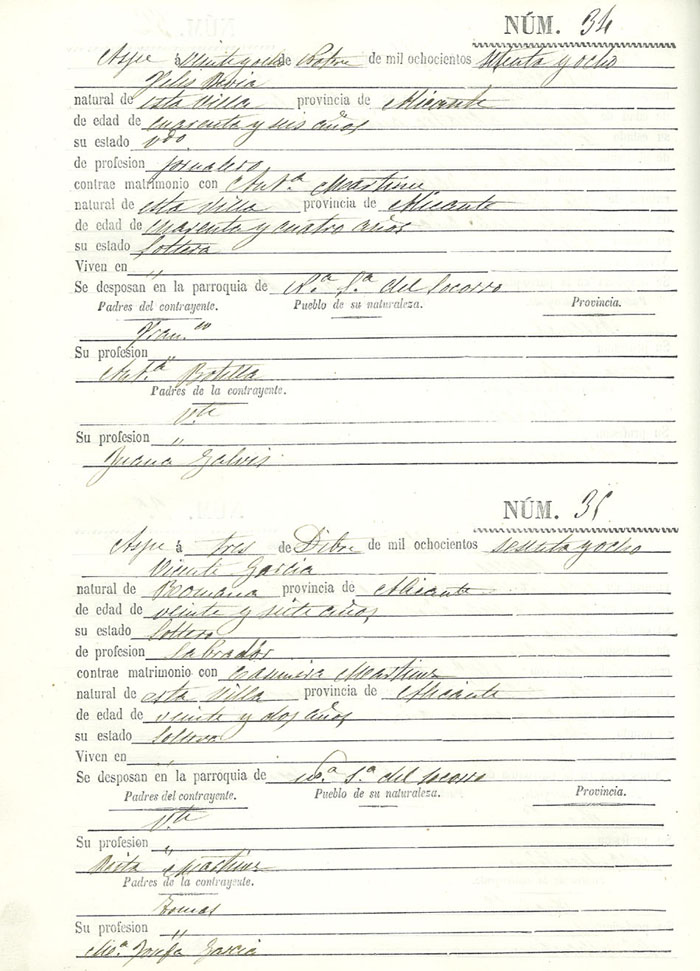 NÚM. 34
Aspe á veinte y ocho de Nobre de mil ochocientos sesenta y ocho
Felis Bevia
natural de esta villa provincia de Alicante
de edad de cuarenta y seis años
su estado Vdo
de profesion jornalero
contrae matrimonio con Ant.ª Martinez
natural de esta villa provincia de Alicante
de edad de cuarenta y cuatro años
su estado soltera
Viven en "
Se desposan en la parroquia de N.ª S.ª del Socorro
Padres del contrayente. Pueblo de su naturaleza. Provincia.
Fran.co
Su profesion "
Ant.ª Botella
Padres de la contrayente.
V.te
Su profesion "
Juana Galvis
NÚM. 35
Aspe á tres de Dibre de mil ochocientos sesenta y ocho
Vicente Garcia
natural de Romana provincia de Alicante
de edad de veinte y siete años
su estado soltero
de profesion Labrador
contrae matrimonio con Casimira Martinez
natural de esta villa provincia de Alicante
de edad de veinte y dos años
su estado soltera
Viven en "
Se desposan en la parroquia de N.ª S.ª del Socorro
Padres del contrayente. Pueblo de su naturaleza. Provincia.
V.te
Su profesion "
Rita Martinez
Padres de la contrayente.
Tomas
Su profesion "
M.ª Josefa Garcia